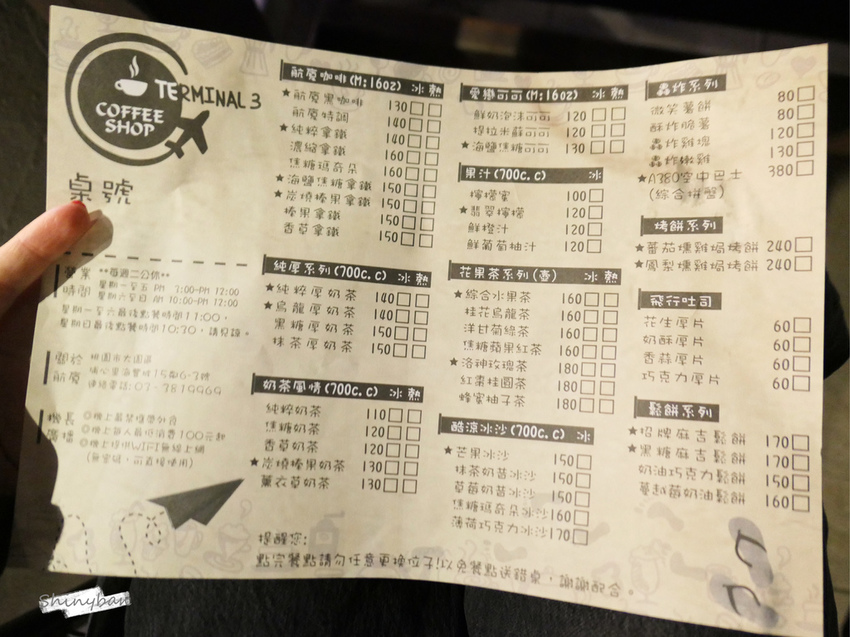 COFFEE
SHOP
TERMINAL 3
桌號
營業 **每週二公休**
時間 星期一至五 PM 7:00-PM 12:00
星期六至日 AM 10:00-PM 12:00
星期一至六最後點餐時間11:00,
星期日最後點餐時間10:30,請見諒。
關於 桃園市大園區
航廈
連絡電話:03-3819969
機長 ◎機上最禁獲帶外食
廣播 ◎機上每人最低消費100元起
◎機上提供WIFI無線上網
(無密碼,可直接使用)
航廈咖啡(M:16oz) 冰 熱
★航廈黑咖啡 130
航廈特調 140
★純粹拿鐵 140
濃縮拿鐵 160
焦糖瑪奇朵 160
★海鹽焦糖拿鐵 150
★炭燒榛果拿鐵 150
榛果拿鐵 150
香草拿鐵 150
純厚系列(700c.c) 冰 熱
★純粹厚奶茶 140
★烏龍厚奶茶 140
黑糖厚奶茶 150
抹茶厚奶茶 150
奶茶風情(700c.c) 冰 熱
純粹奶茶 110
焦糖奶茶 120
香草奶茶 120
★炭燒榛果奶茶 130
薰衣草奶茶 130
愛戀可可(M:16oz) 冰 熱
鮮奶泡沫可可 120
提拉米蘇可可 120
★海鹽焦糖可可 130
果汁(700c.c) 冰
檸檬蜜 100
★翡翠檸檬 120
鮮橙汁 120
鮮葡萄柚汁 120
花果茶系列(壺) 冰 熱
★綜合水果茶 160
桂花烏龍茶 160
洋甘菊綠茶 160
焦糖蘋果紅茶 160
★洛神玫瑰茶 180
紅棗桂圓茶 180
蜂蜜柚子茶 180
酷涼冰沙(700c.c) 冰
★芒果冰沙 150
抹茶奶昔冰沙 150
草莓奶昔冰沙 150
焦糖瑪奇朵冰沙 160
薄荷巧克力冰沙 170
轟炸系列
微笑薯餅 80
酥炸脆薯 80
轟炸雞塊 120
轟炸嫩雞 130
★A380空中巴士 380
(綜合拼盤)
烤餅系列
★蕃茄燻雞焗烤餅 240
★鳳梨燻雞焗烤餅 240
飛行吐司
花生厚片 60
奶酥厚片 60
香蒜厚片 60
巧克力厚片 60
鬆餅系列
★招牌麻吉鬆餅 170
★黑糖麻吉鬆餅 170
奶油巧克力鬆餅 150
蔓越莓奶油鬆餅 160
提醒您:
點完餐點請勿任意更換位子!以免餐點送錯桌,謝謝配合。
Shinyban